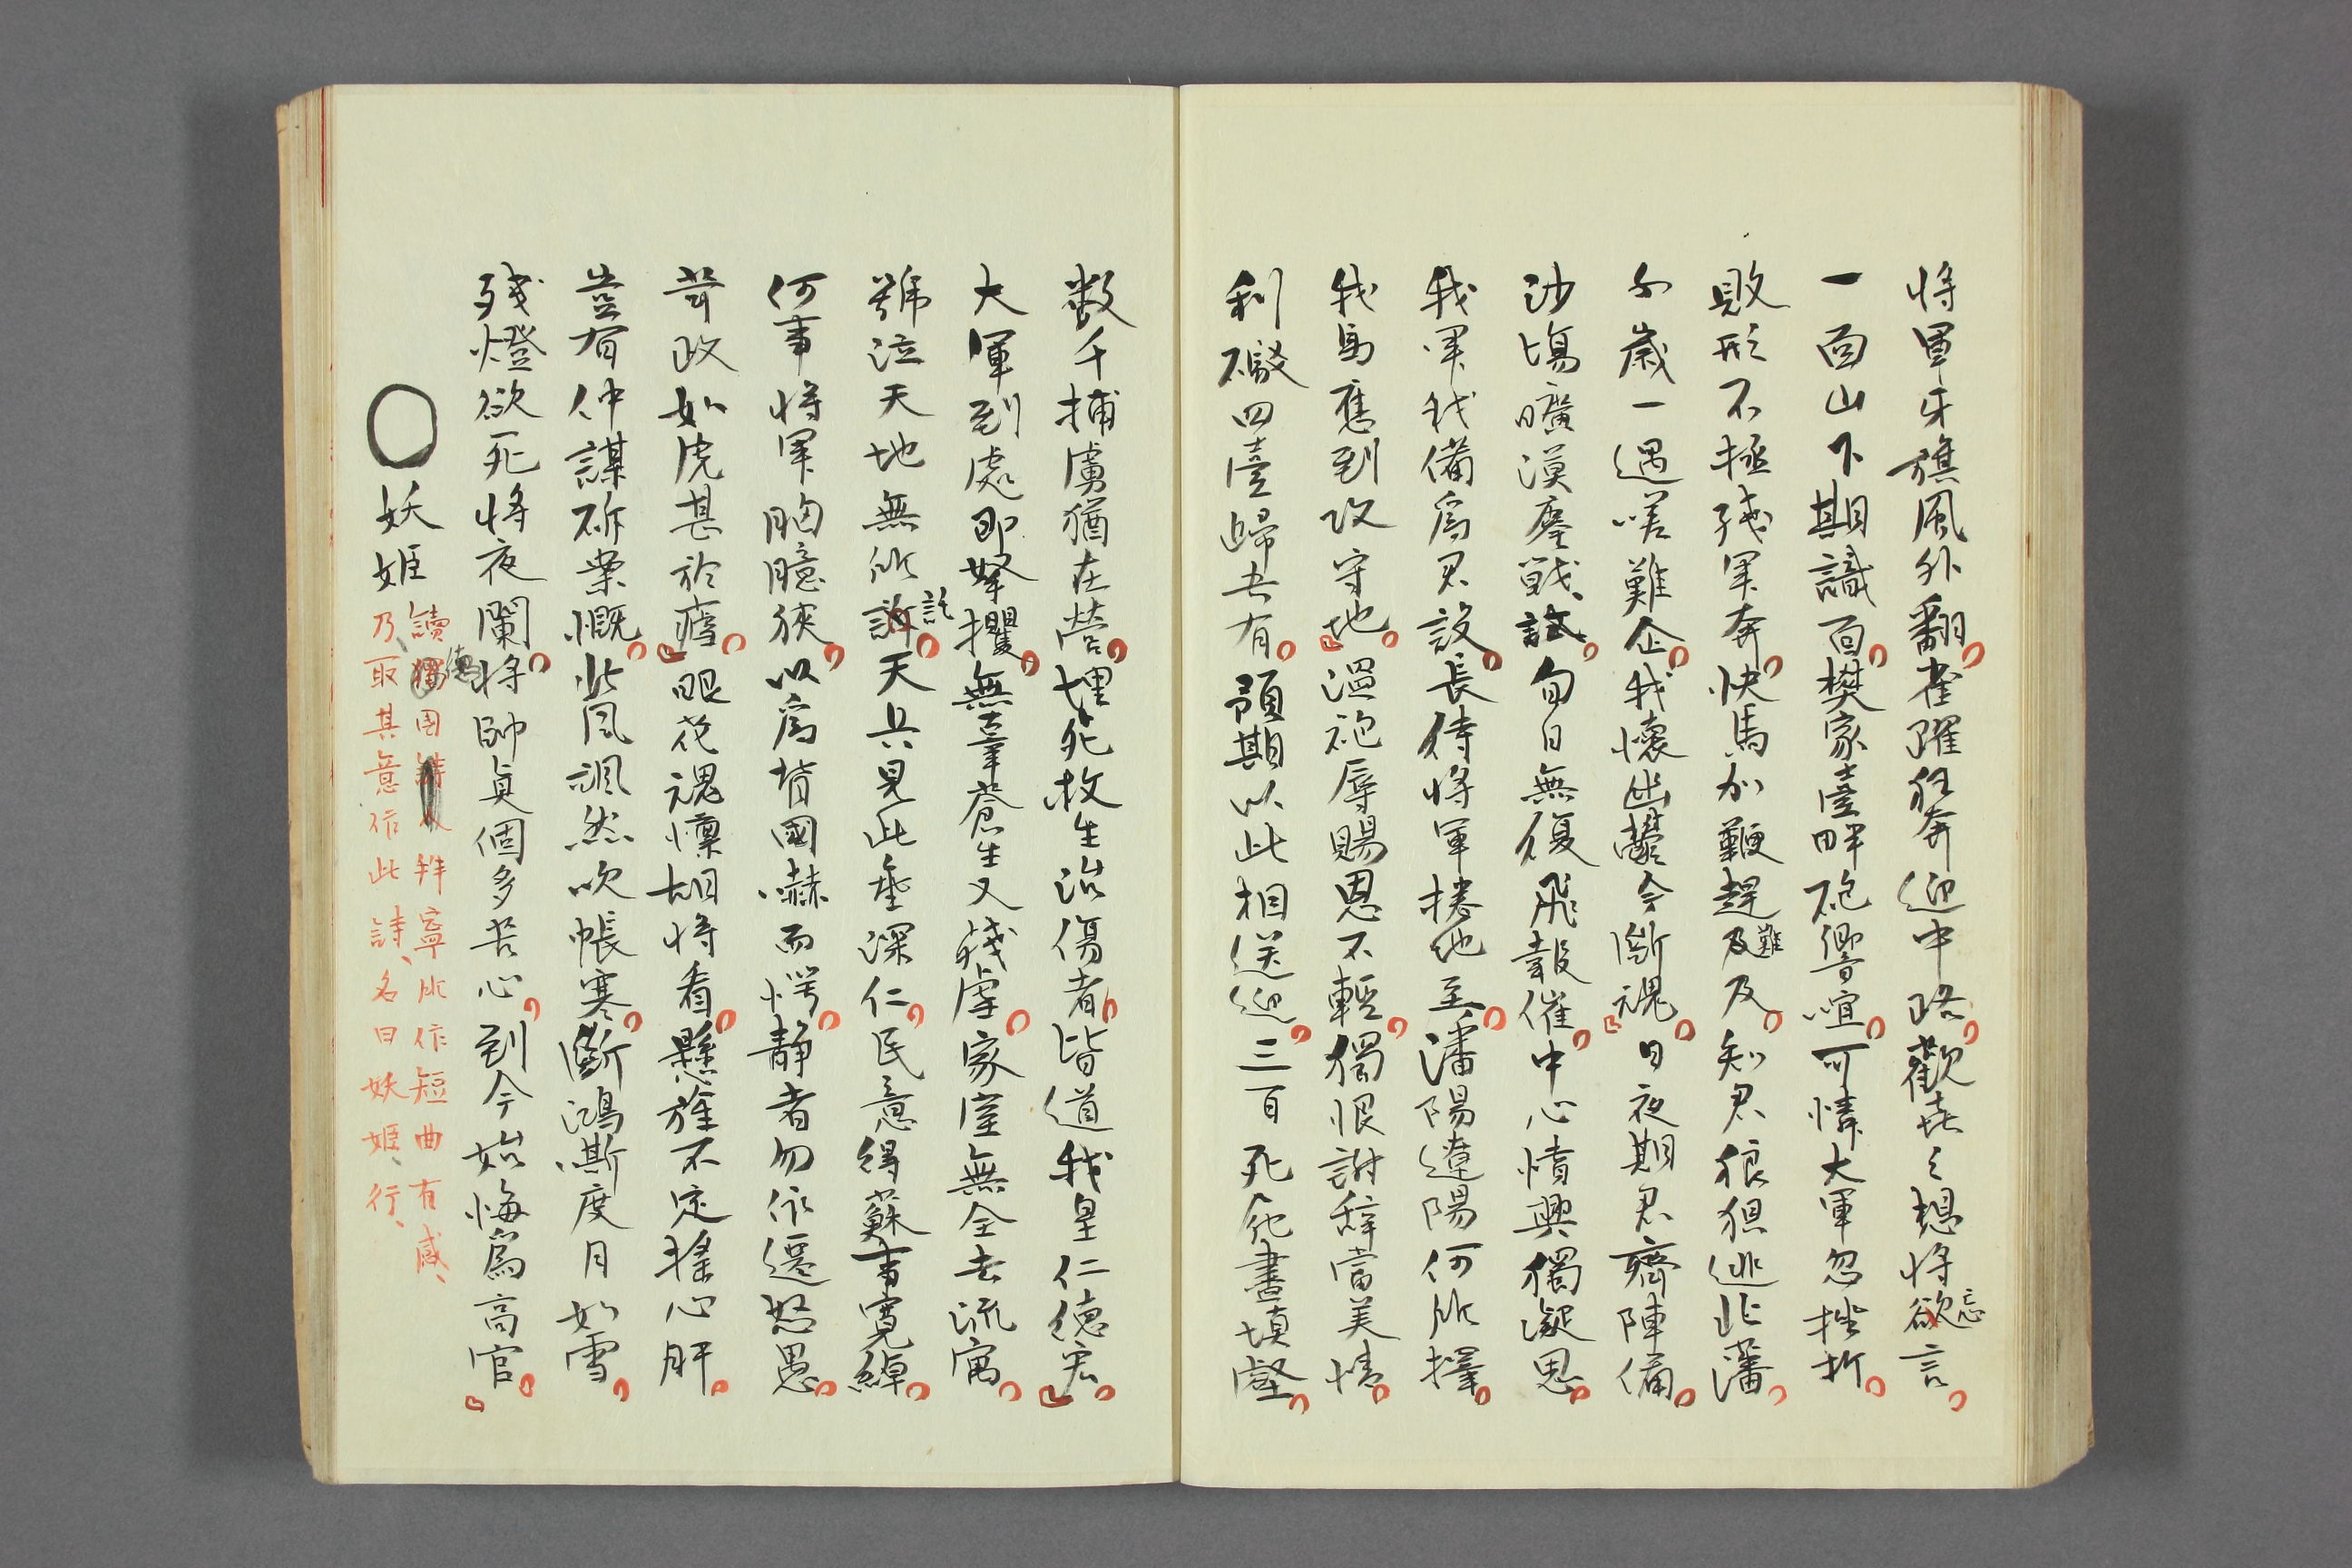 将軍牙旗風外翻雀躍狂奔迎中路歡喜々想将欲忘言
一面山下期識面樊家臺畔砲響喧可憐大軍忽挫折
敗形不拯残軍奔快馬加鞭趕難及及知君狼狽逃北藩
千歳一遇嗟難企我懷幽鬱今斷魂日夜期君齊陣備
沙場曠漠塵戰試旬日無復飛報催中心憤興獨凝思
我軍我備為君設長待将軍捲地至瀋陽遼陽何所擇
我馬應到攻守地温袍辱賜恩不輕獨恨謝辞當美情
利礮四臺歸吾有預期以此相送迎三百死屍盡填壑
数千捕虜猶在營埋死救生治傷者皆道我皇仁德宏
大軍到處即拏攫無辜蒼生又残虐家室無全去流寓
號泣天地無所訴託天兵見此垂深仁民意得蘇書寛綽
何事将軍胸臆狹以為背國嚇而愕静者勿依遷怒愚
苛政如虎甚於瘧眼花魂懍胡将看懸旌不定搖心肝
豈有仲謀斫案慨北風颯然吹帳寒斷鴻嘶度月如雪
残燈欲死将夜闌将帥真個多苦心到今始悔為高官
〇妖姫
讀獨德国詩人拜寧所作短曲有感、
乃取其意作此詩、名曰妖姫行、